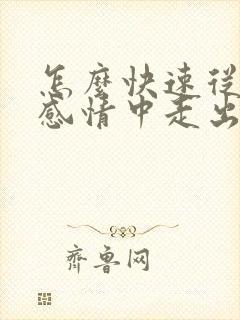 怎麼快速從
感情中走出
齊魯网